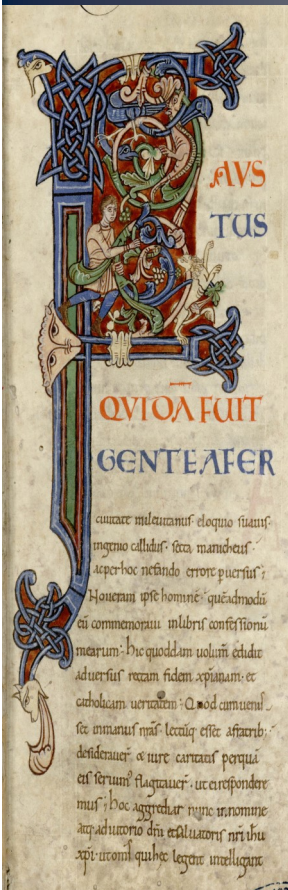 FAVS
TUS
QVIDĀ FUIT
GENTE AFER
ciuitate mileuitanus· eloquio suauis·
ingenio callidus· secta manicheus·
ac per hoc nefando errore puersus;
Noueram ipse hominē· quēadmodū
eū commemoraui in libris confessionū
mearum· hic quoddam uolum̄ edidit
aduersus rectam fidem xp̄ianam· et
catholicam ueritatem· Quod cum uenis
set in manus nr̄as· lectūq; esset a fratrib;·
desiderauer̄ & iure caritatis per quā
eis seruim̄ flagitauer̄· ut ei respondere
mus; hoc aggrediar nunc in nomine
atq; adiutorio dn̄i et saluatoris nr̄i ihu
xp̄i· ut om̄s qui hec legent intelligant